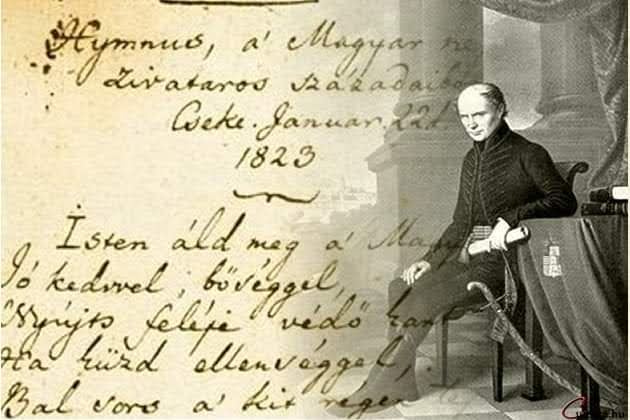 Hymnus, a' Magyar
zivataros századaibó
Cseke. Januar. 22d.
1823
Isten áld meg a' Magy
Jó kedvvel, bőséggel,
Nyújts feléje védő kart
Ha küzd ellenséggel,
Bal sors a' kit régen